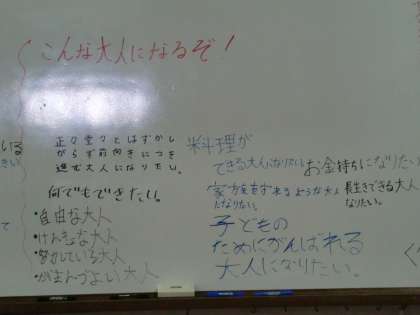 こんな大人になるぞ！
正々堂々とはずかし
がらず前向きにつき
進む大人になりたい。
何でもできたい。
・自由な大人
・けんきょな大人
・努力している大人
・がまんづよい大人
料理が
できる大人になりたい
お金持ちになりたい
大人
になりたい。
長生きできる大人
になりたい。
子どもの
ためにがんばれる
大人になりたい。